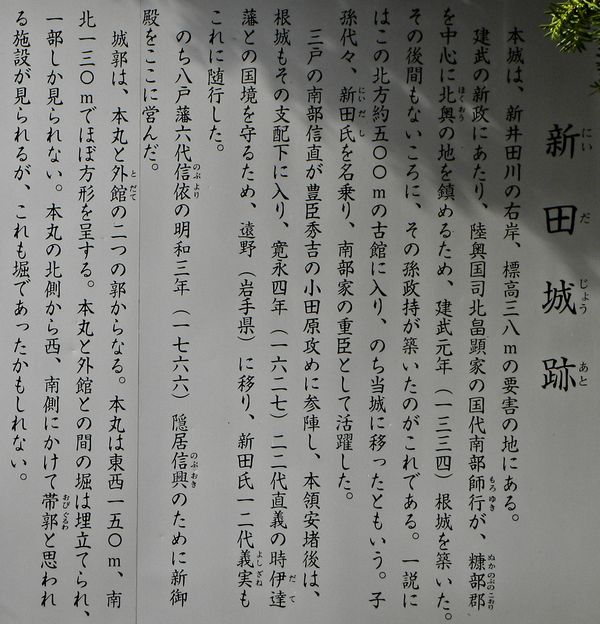 新田城跡
にいだじょうあと
本城は、新井田川の右岸、標高三八mの要害の地にある。
建武の新政にあたり、陸奥国司北畠顕家の国代南部師行が、糠部郡
もろゆき
ぬかのぶのこおり
を中心に北奥の地を鎮めるため、建武元年（一三三四）根城を築いた。
ほくおう
その後間もないころに、その孫政持が築いたのがこれである。一説に
はこの北方約五〇〇mの古館に入り、のち当城に移ったともいう。子
孫代々、新田氏を名乗り、南部家の重臣として活躍した。
にいだし
三戸の南部信直が豊臣秀吉の小田原攻めに参陣し、本領安堵後は、
根城もその支配下に入り、寛永四年（一六二七）二二代直義の時伊達
だて
藩との国境を守るため、遠野（岩手県）に移り、新田氏一二代義実も
よしざね
これに随行した。
のち八戸藩六代信依の明和三年（一七六六）隠居信興のために新御
のぶより
のぶおき
殿をここに営んだ。
城郭は、本丸と外館の二つの郭からなる。本丸は東西一五〇m、南
とだて
北一三〇mでほぼ方形を呈する。本丸と外館との間の堀は埋立てられ、
一部しか見られない。本丸の北側から西、南側にかけて帯郭と思われ
おびぐるわ
る施設が見られるが、これも堀であったかもしれない。